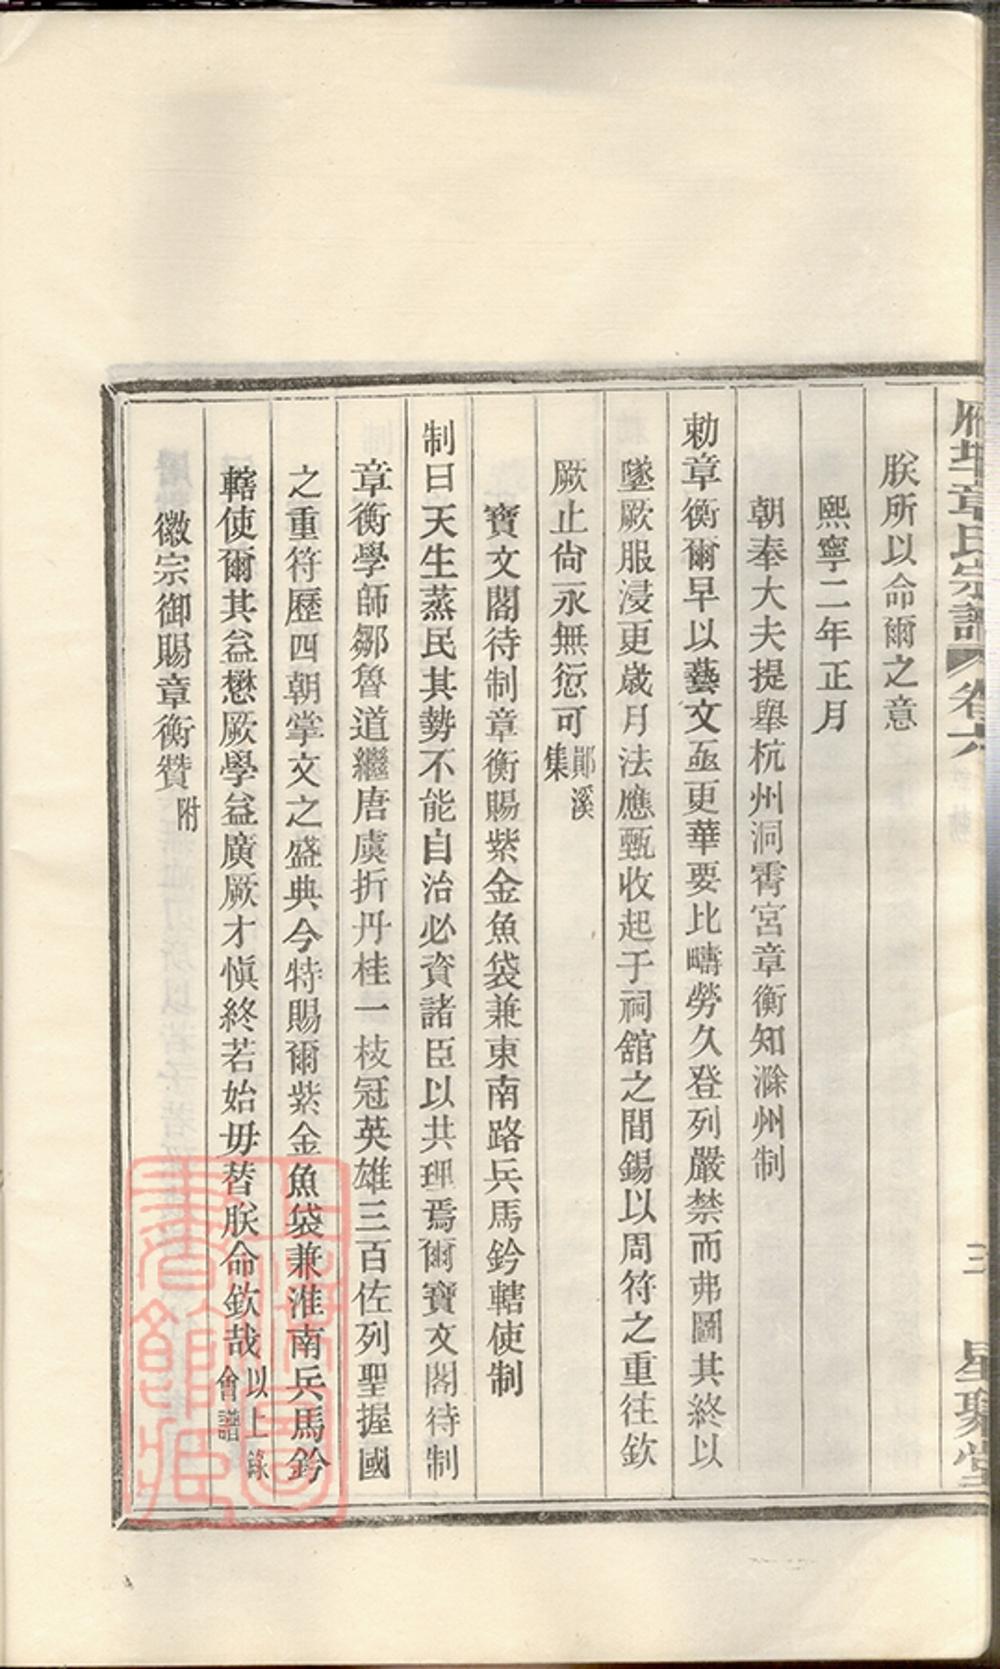 章氏宗譜 卷六 三 星聚堂
朕所以命爾之意
熙寧二年正月
朝奉大夫提舉杭州洞霄宮章衡知滁州制
勅章衡爾早以藝文亟更華要比疇勞久登列嚴禁而弗圖其終以
墜厥服浸更歲月法應甄收起于祠舘之間錫以周符之重往欽
厥止尙永無愆可鄖溪集
寶文閣待制章衡賜紫金魚袋兼東南路兵馬鈐轄使制
制曰天生蒸民其勢不能自治必資諸臣以共理焉爾寶文閣待制
章衡學師鄒魯道繼唐虞折丹桂一枝冠英雄三百佐列聖握國
之重符歷四朝掌文之盛典今特賜爾紫金魚袋兼淮南兵馬鈐
轄使爾其益懋厥學益廣厥才愼終若始毋替朕命欽哉以上錄會譜
徽宗御賜章衡贊附